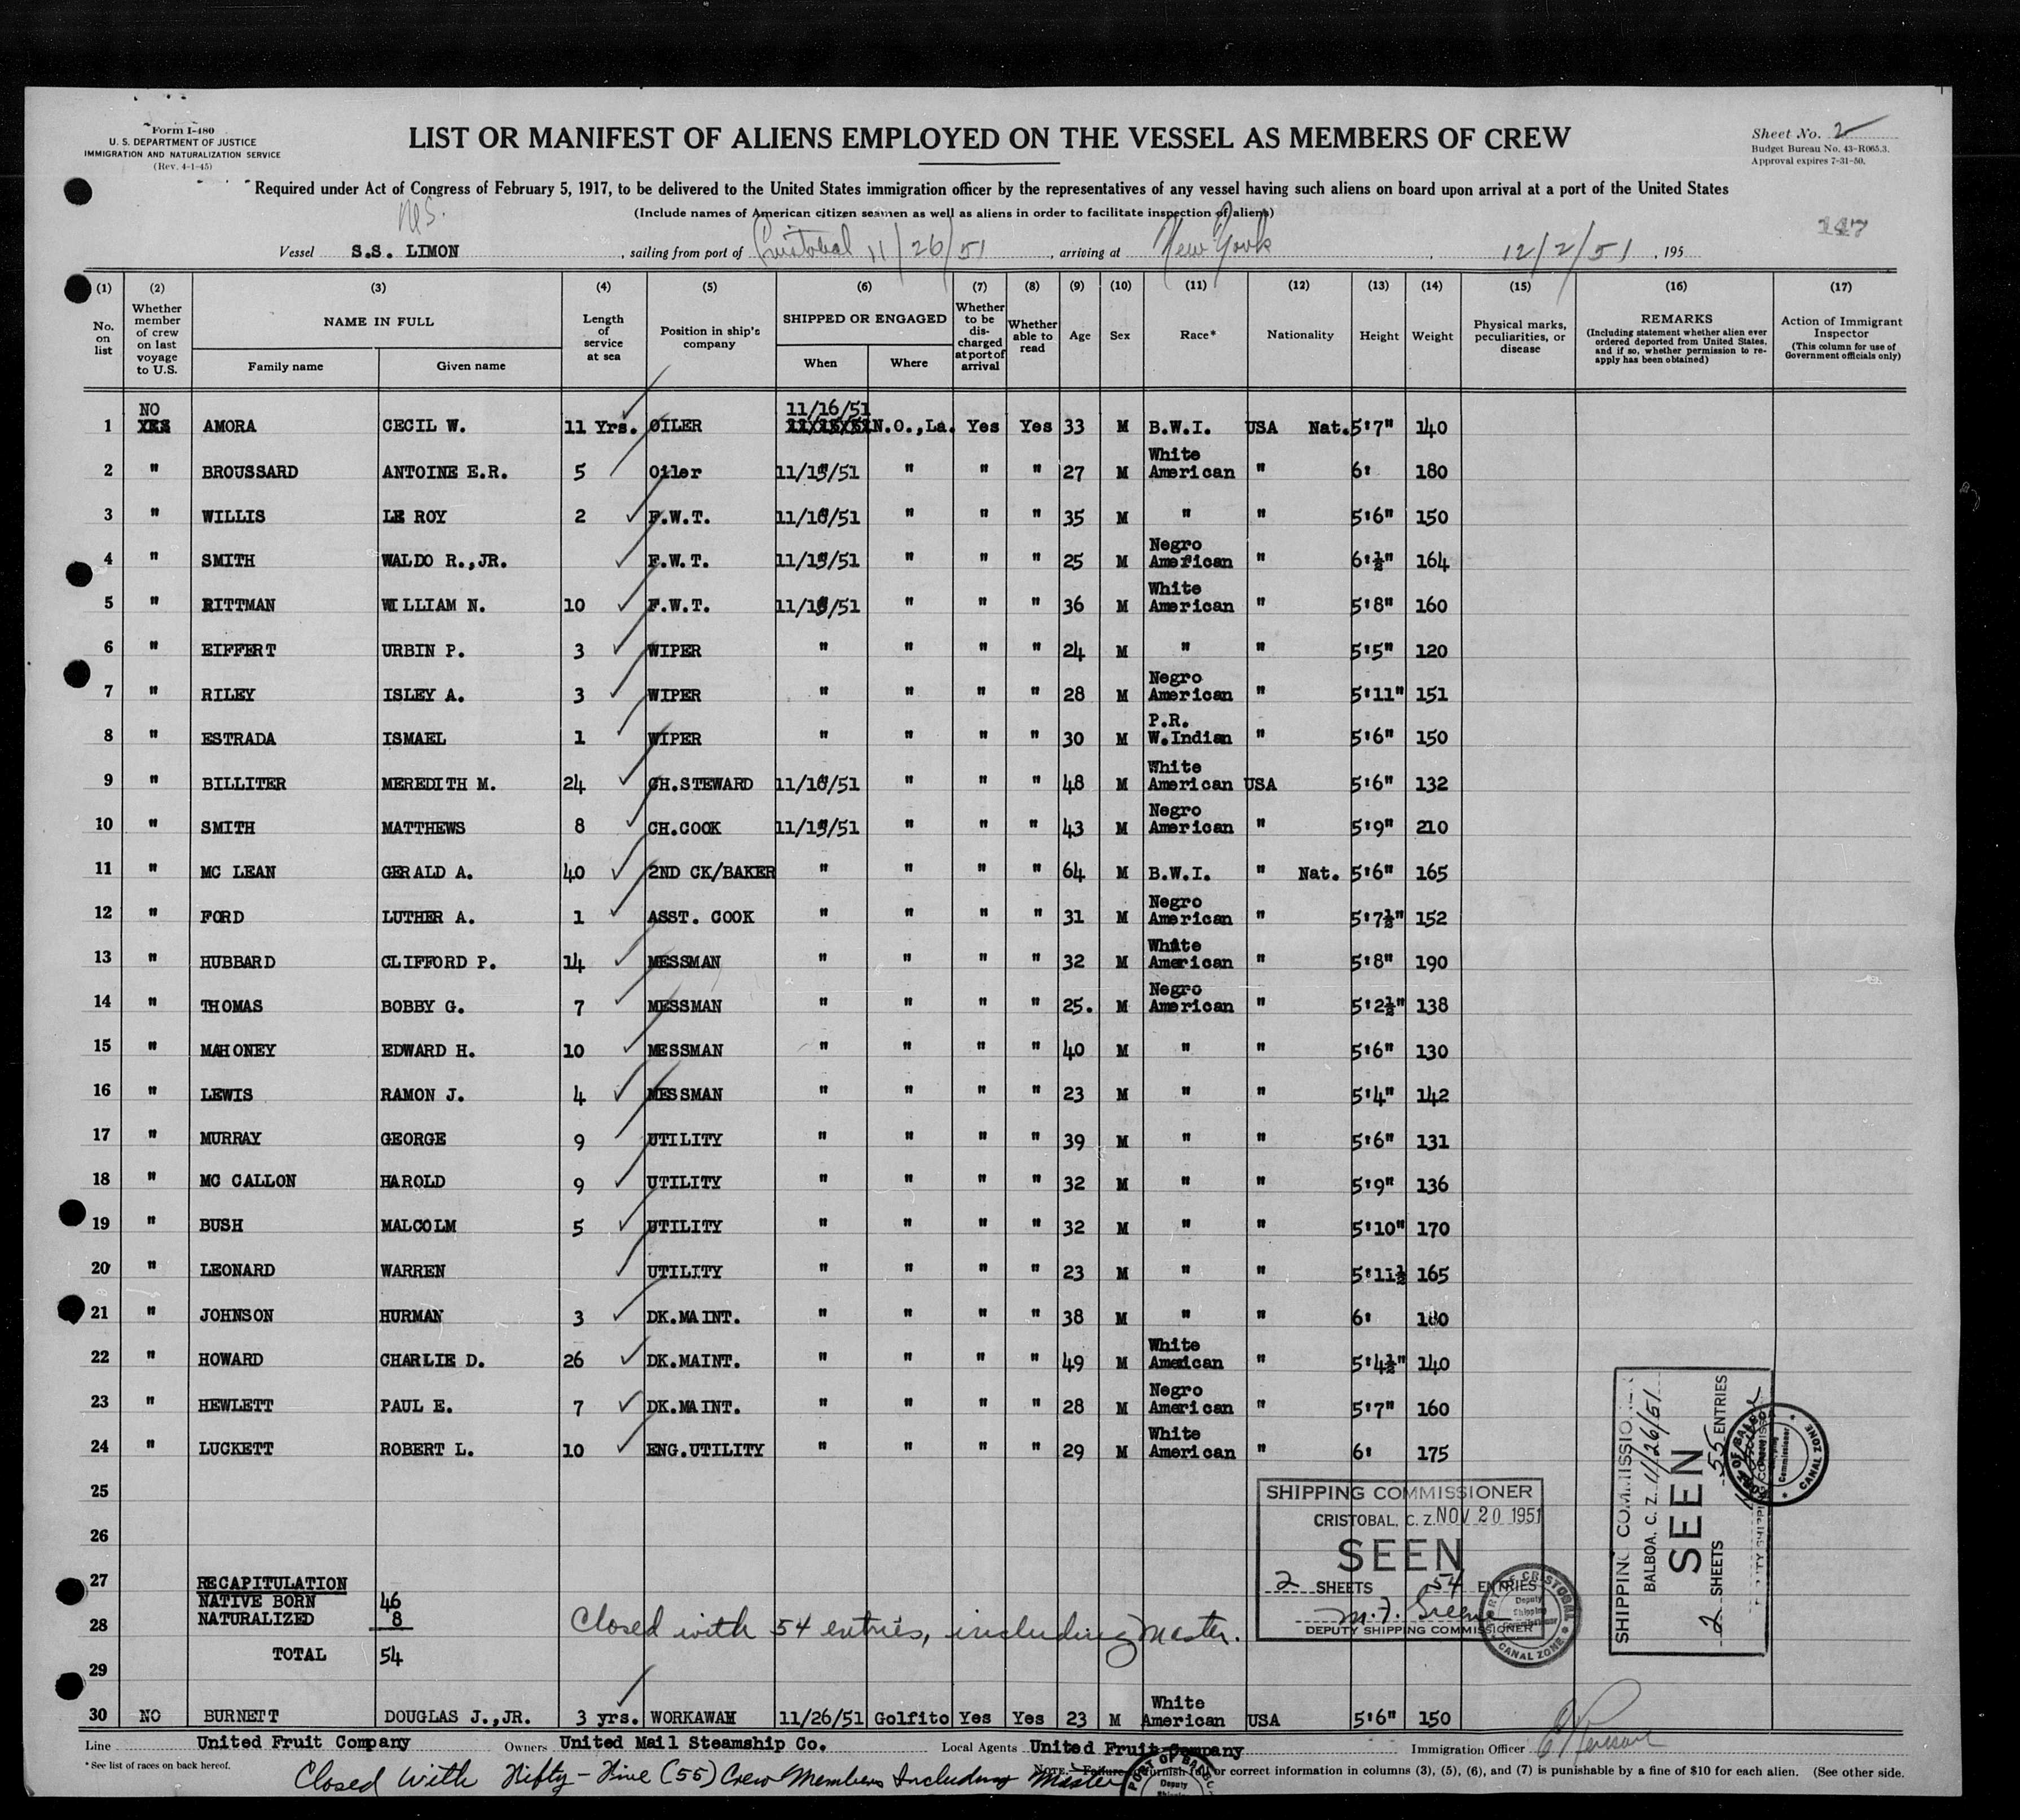 Form I-480
U. S. DEPARTMENT OF JUSTICE
IMMIGRATION AND NATURALIZATION SERVICE
(Rev. 4-1-45)
LIST OR MANIFEST OF ALIENS EMPLOYED ON THE VESSEL AS MEMBERS OF CREW
Sheet No. 2
Budget Bureau No. 43-R065.3.
Approval expires 7-31-50.
Required under Act of Congress of February 5, 1917, to be delivered to the United States immigration officer by the representatives of any vessel having such aliens on board upon arrival at a port of the United States
(Include names of American citizen seamen as well as aliens in order to facilitate inspection of aliens)
147
Vessel S.S. LIMON , sailing from port of Cristobal 11/26/51 , arriving at New York , 12/2/51 , 195
(1) (2) (3) (4) (5) (6) (7) (8) (9) (10) (11) (12) (13) (14) (15) (16) (17)
No. on list
Whether member of crew on last voyage to U.S.
NAME IN FULL
Family name Given name
Length of service at sea
Position in ship's company
SHIPPED OR ENGAGED
When Where
Whether to be discharged at port of arrival
Whether able to read
Age Sex Race* Nationality Height Weight
Physical marks, peculiarities, or disease
REMARKS
(Including statement whether alien ever ordered deported from United States, and if so, whether permission to reapply has been obtained)
Action of Immigrant Inspector
(This column for use of Government officials only)
1 NO AMORA CECIL W. 11 Yrs. OILER 11/16/51 N.O.,La. Yes Yes 33 M B.W.I. USA Nat. 5'7" 140
2 " BROUSSARD ANTOINE E.R. 5 Oiler 11/15/51 " " " 27 M White American " 6' 180
3 " WILLIS LE ROY 2 F.W.T. 11/16/51 " " " 35 M " " 5'6" 150
4 " SMITH WALDO R.,JR. F.W.T. 11/15/51 " " " 25 M Negro American " 6'½" 164
5 " RITTMAN WILLIAM N. 10 F.W.T. 11/16/51 " " " 36 M White American " 5'8" 160
6 " EIFFERT URBIN P. 3 WIPER " " " " 24 M " " 5'5" 120
7 " RILEY ISLEY A. 3 WIPER " " " " 28 M Negro American " 5'11" 151
8 " ESTRADA ISMAEL 1 WIPER " " " " 30 M P.R. W.Indian " 5'6" 150
9 " BILLITER MEREDITH M. 24 CH.STEWARD 11/16/51 " " " 48 M White American USA 5'6" 132
10 " SMITH MATTHEWS 8 CH.COOK 11/15/51 " " " 43 M Negro American " 5'9" 210
11 " MC LEAN GERALD A. 40 2ND CK/BAKER " " " " 64 M B.W.I. " Nat. 5'6" 165
12 " FORD LUTHER A. 1 ASST. COOK " " " " 31 M Negro American " 5'7½" 152
13 " HUBBARD CLIFFORD P. 14 MESSMAN " " " " 32 M White American " 5'8" 190
14 " THOMAS BOBBY G. 7 MESSMAN " " " " 25. M Negro American " 5'2½" 138
15 " MAHONEY EDWARD H. 10 MESSMAN " " " " 40 M " " 5'6" 130
16 " LEWIS RAMON J. 4 MESSMAN " " " " 23 M " " 5'4" 142
17 " MURRAY GEORGE 9 UTILITY " " " " 39 M " " 5'6" 131
18 " MC CALLON HAROLD 9 UTILITY " " " " 32 M " " 5'9" 136
19 " BUSH MALCOLM 5 UTILITY " " " " 32 M " " 5'10" 170
20 " LEONARD WARREN UTILITY " " " " 23 M " " 5'11½ 165
21 " JOHNSON HURMAN 3 DK.MAINT. " " " " 38 M " " 6' 180
22 " HOWARD CHARLIE D. 26 DK.MAINT. " " " " 49 M White American " 5'4½" 140
23 " HEWLETT PAUL E. 7 DK.MAINT. " " " " 28 M Negro American " 5'7" 160
24 " LUCKETT ROBERT L. 10 ENG.UTILITY " " " " 29 M White American " 6' 175
25
26
27 RECAPITULATION
NATIVE BORN 46
28 NATURALIZED 8
TOTAL 54
29
Closed with 54 entries, including Master.
SHIPPING COMMISSIONER
CRISTOBAL, C. Z. NOV 20 1951
SEEN
2 SHEETS 54 ENTRIES
M. J. Greene
DEPUTY SHIPPING COMMISSIONER
PORT OF CRISTOBAL
Deputy Shipping Commissioner
CANAL ZONE
SHIPPING COMMISSIONER
BALBOA, C. Z. 11/26/51
SEEN
2 SHEETS 55 ENTRIES
DEPUTY SHIPPING COMMISSIONER
PORT OF BALBOA
Deputy Shipping Commissioner
CANAL ZONE
30 NO BURNETT DOUGLAS J.,JR. 3 yrs. WORKAWAH 11/26/51 Golfito Yes Yes 23 M White American USA 5'6" 150
Line United Fruit Company Owners United Mail Steamship Co. Local Agents United Fruit Company Immigration Officer
* See list of races on back hereof.
NOTE.—Failure to furnish full or correct information in columns (3), (5), (6), and (7) is punishable by a fine of $10 for each alien. (See other side.
Closed With Fifty-Five (55) Crew Members Including Master
PORT OF BALBOA
Deputy
Shipping